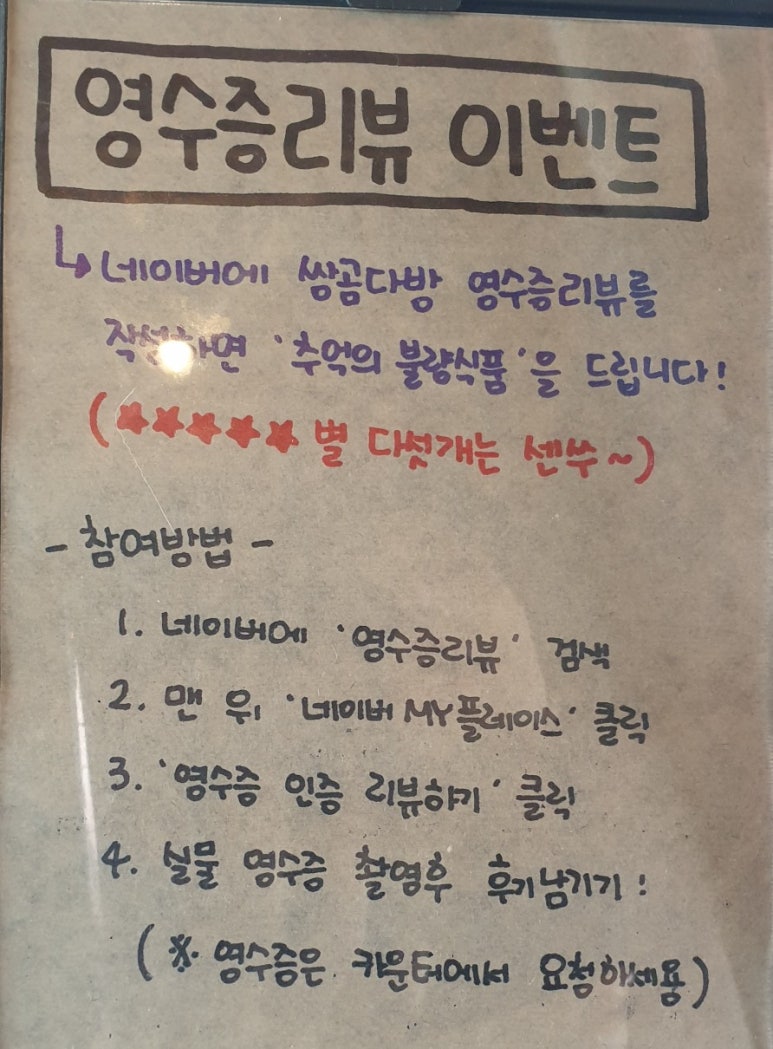 영수증리뷰 이벤트
↳네이버에 쌍곰다방 영수증리뷰를
작성하면 '추억의 불량식품'을 드립니다!
(★★★★★ 별 다섯개는 센쑤~)
- 참여방법 -
1. 네이버에 '영수증리뷰' 검색
2. 맨 위 '네이버 MY플레이스' 클릭
3. '영수증 인증 리뷰하기' 클릭
4. 실물 영수증 촬영후 후기남기기!
(※ 영수증은 카운터에서 요청하세용)